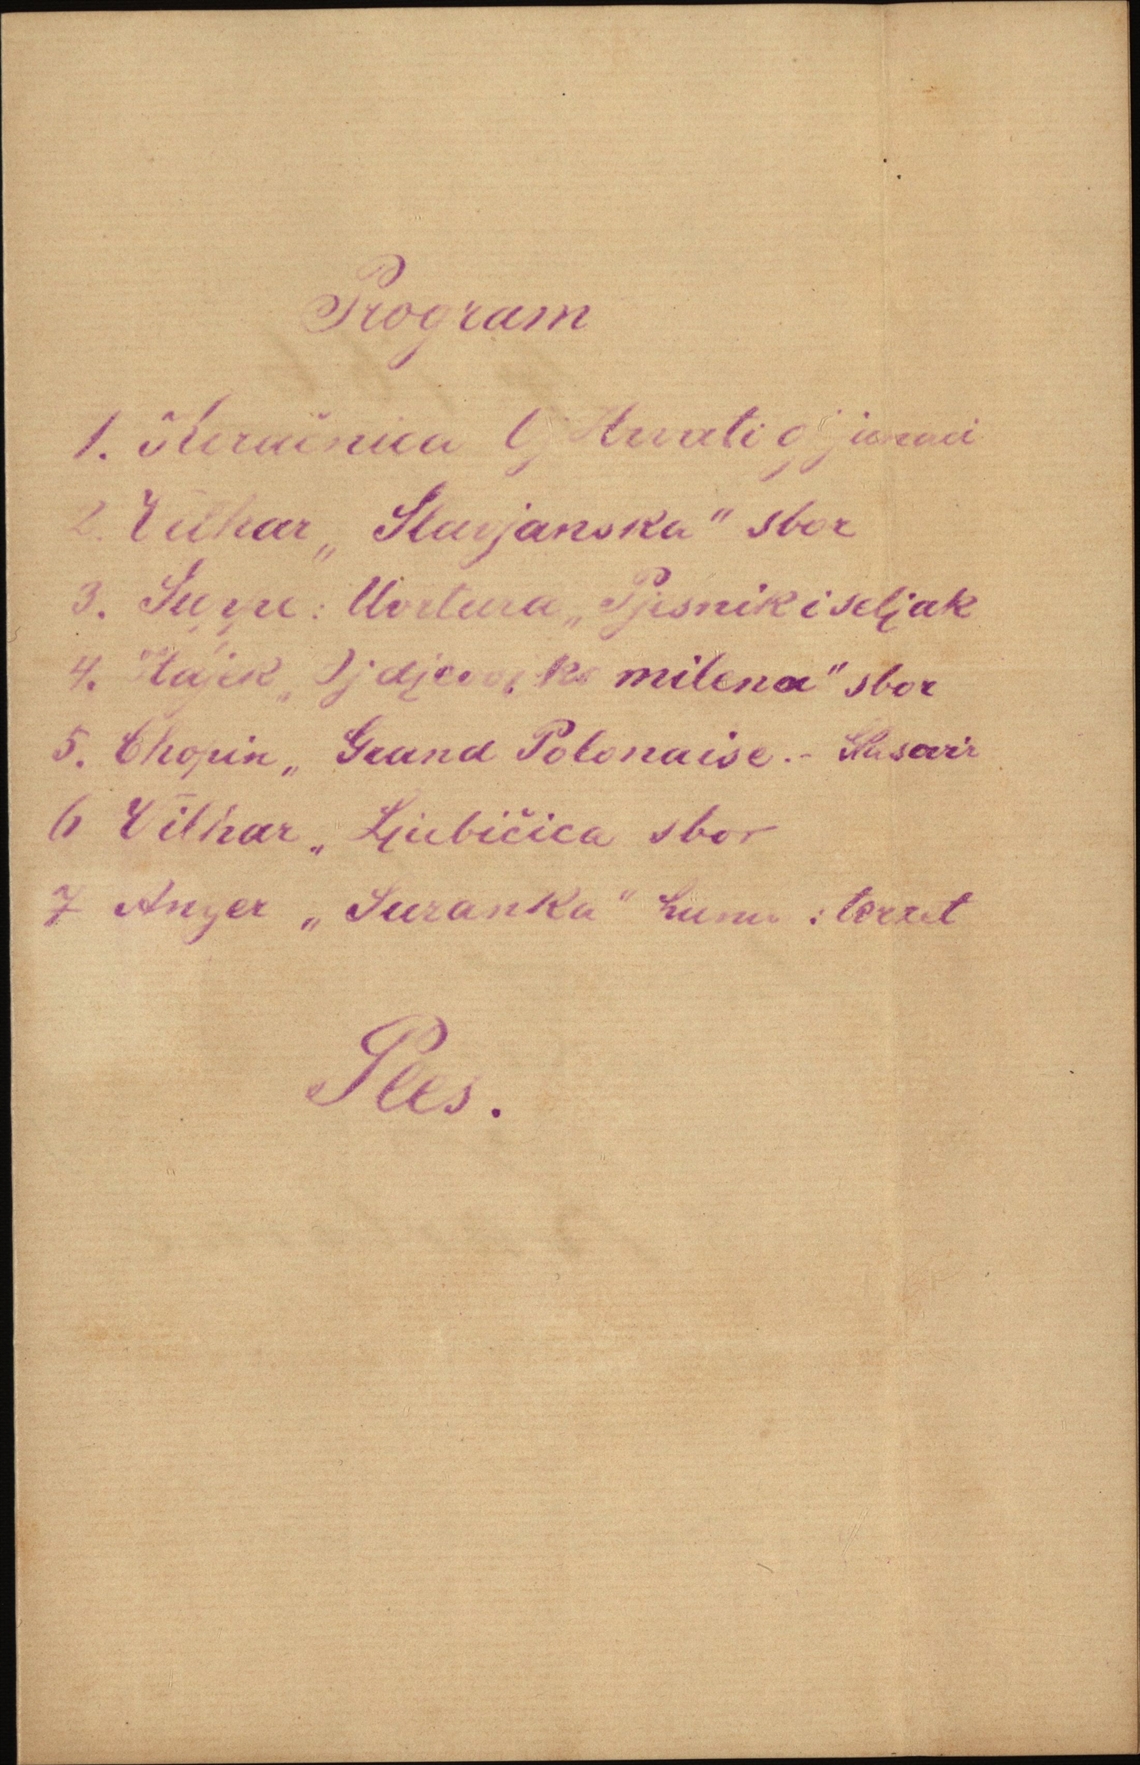 Program
1. Koračnica Oj Hrvati oj junaci
2. Vilhar „Slavjanska" sbor
3. Suppe: Uvertura „Pjesnik i seljak
4. Hajek „Oj djevojko milena" sbor
5. Chopin „Grand Polonaise.- Glasovir
6 Vilhar „Ljubičica sbor
7 Anger „Suzanka" : terzet
Ples.